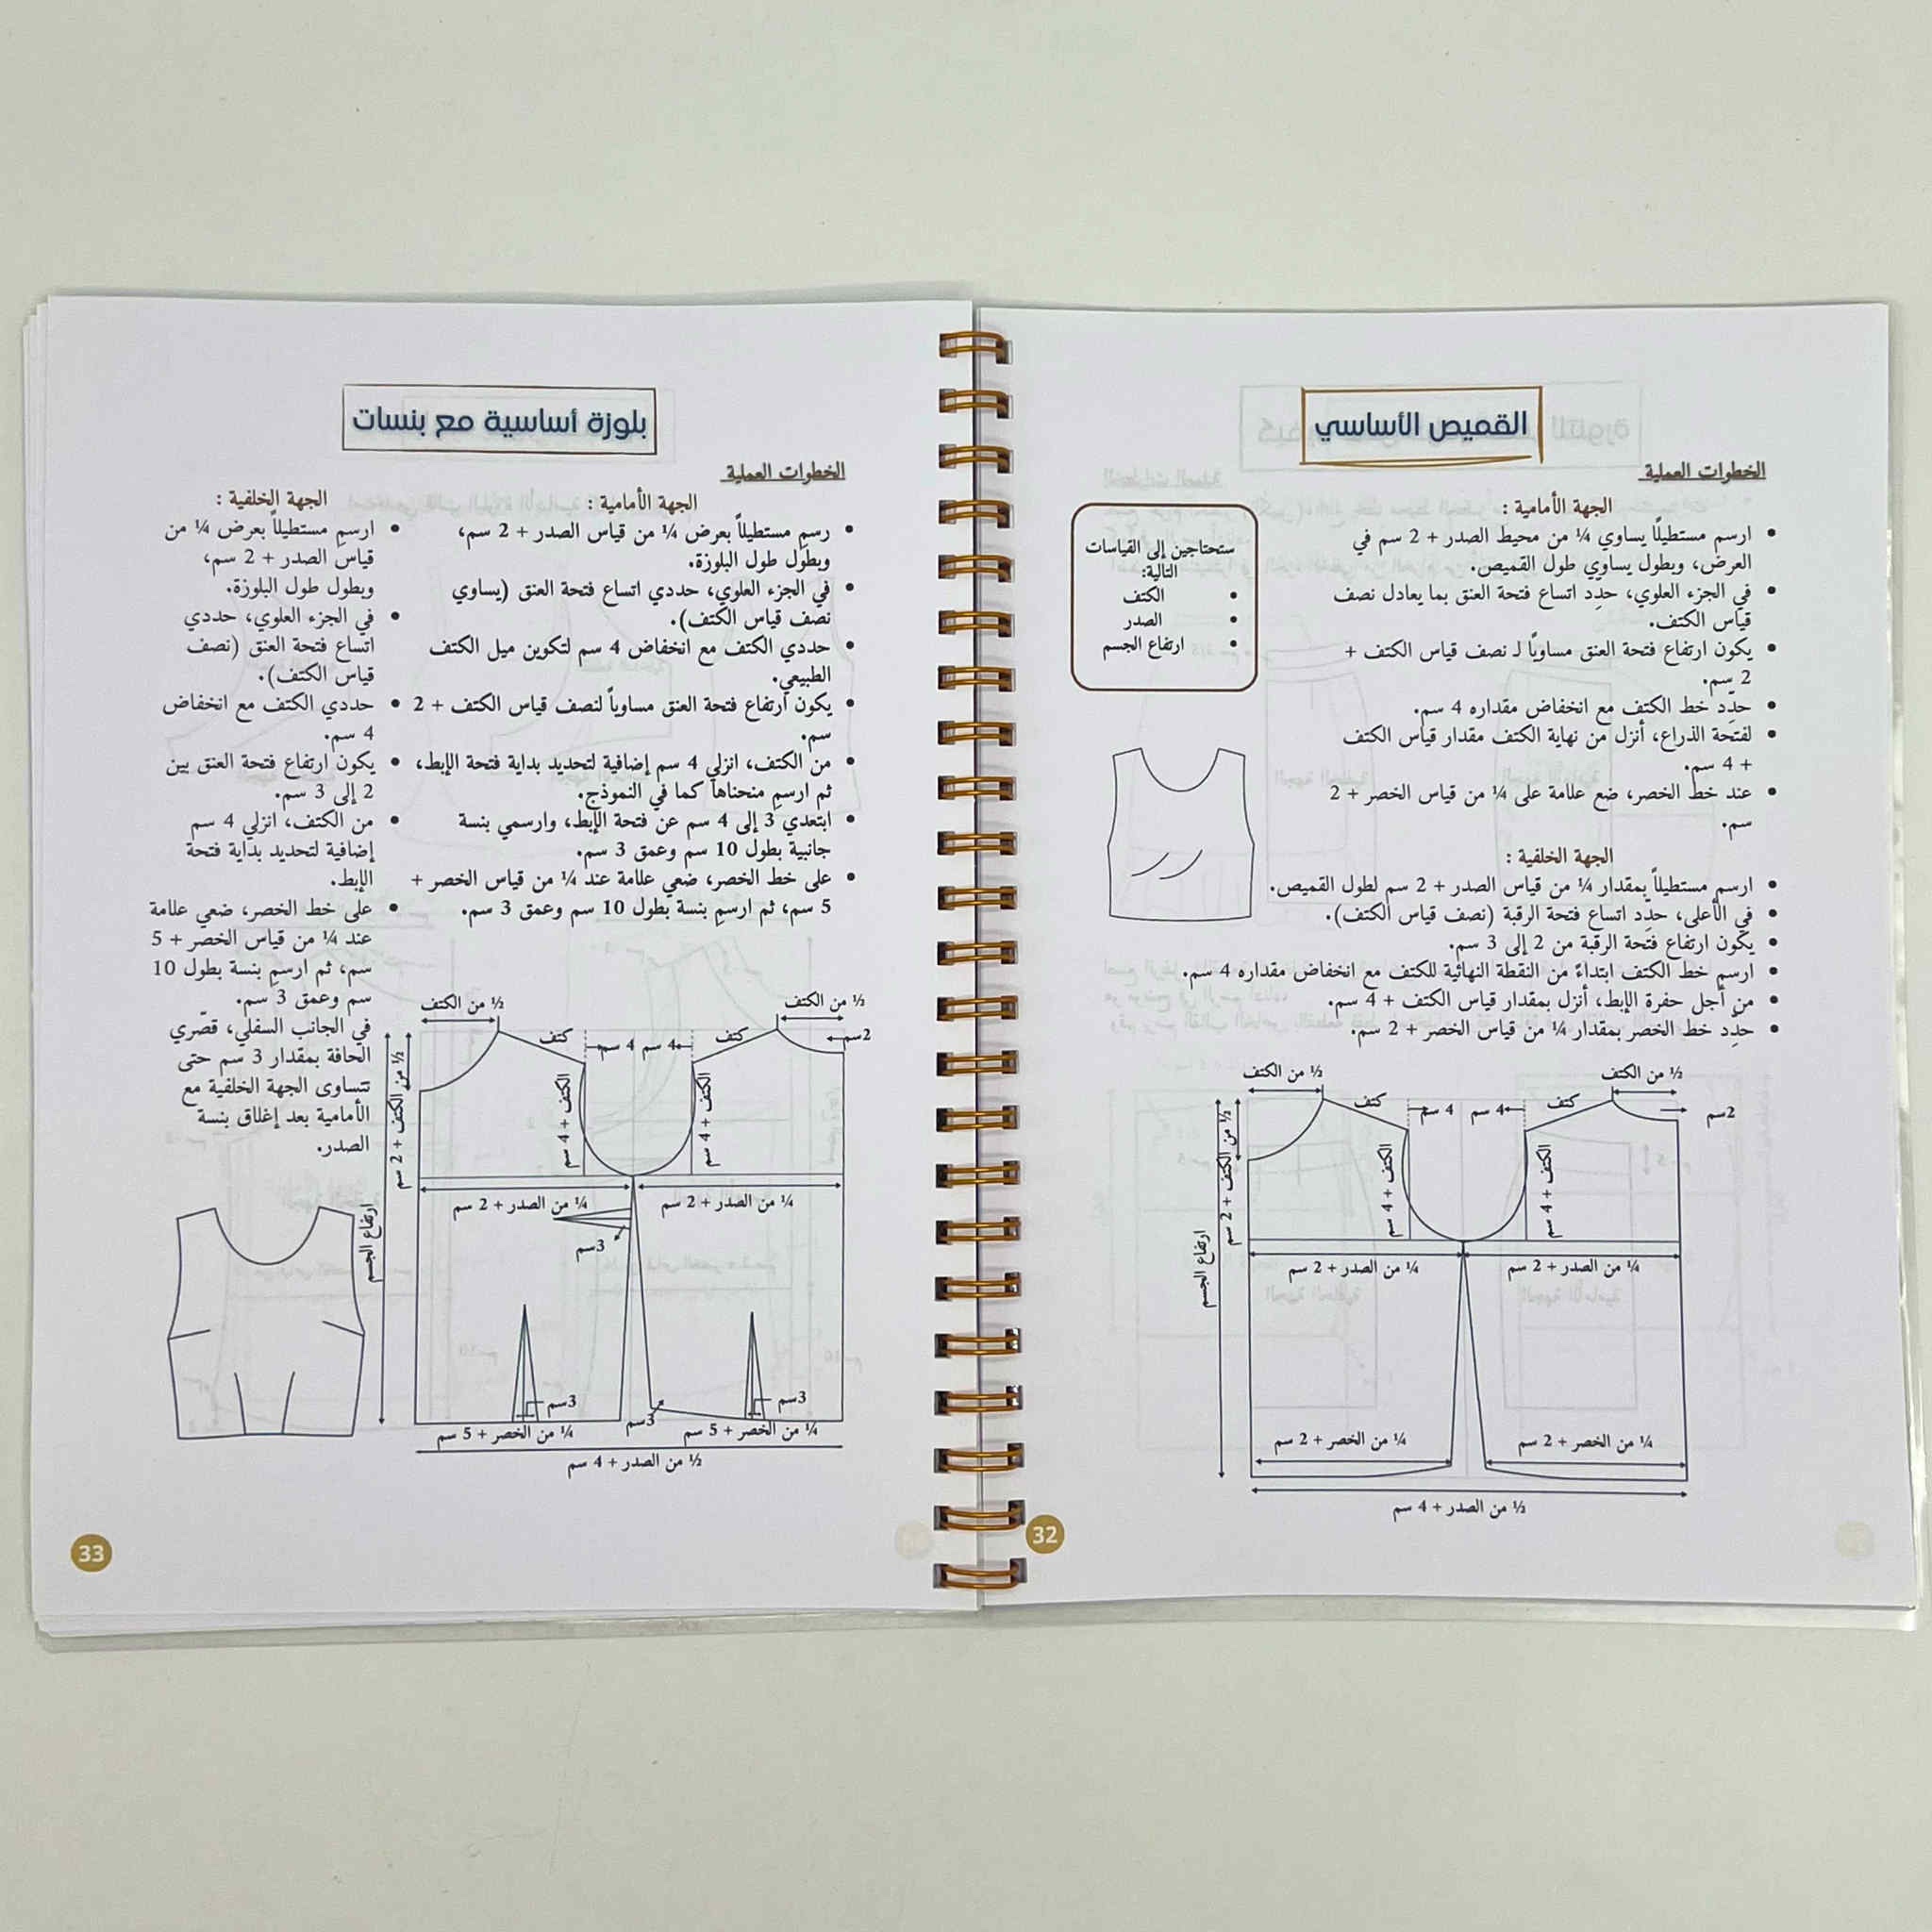 القميص الأساسي
الخطوات العملية
الجهة الأمامية :
• ارسم مستطيلًا يساوي ¼ من محيط الصدر + 2 سم في
العرض، وبطول يساوي طول القميص.
• في الجزء العلوي، حدِّد اتساع فتحة العنق بما يعادل نصف
قياس الكتف.
• يكون ارتفاع فتحة العنق مساويًا لـ نصف قياس الكتف +
2 سم.
• حدِّد خط الكتف مع انخفاض مقداره 4 سم.
• لفتحة الذراع، أنزل من نهاية الكتف مقدار قياس الكتف
+ 4 سم.
• عند خط الخصر، ضع علامة على ¼ من قياس الخصر + 2
سم.
ستحتاجين إلى القياسات
التالية:
• الكتف
• الصدر
• ارتفاع الجسم
الجهة الخلفية :
• ارسم مستطيلاً بمقدار ¼ من قياس الصدر + 2 سم لطول القميص.
• في الأعلى، حدِّد اتساع فتحة الرقبة (نصف قياس الكتف).
• يكون ارتفاع فتحة الرقبة من 2 إلى 3 سم.
• ارسم خط الكتف ابتداءً من النقطة النهائية للكتف مع انخفاض مقداره 4 سم.
• من أجل حفرة الإبط، أنزل بمقدار قياس الكتف + 4 سم.
• حدِّد خط الخصر بمقدار ¼ من قياس الخصر + 2 سم.
½ من الكتف
½ من الكتف
2سم
كتف
4 سم
4 سم
كتف
½ من الكتف + 2 سم
الكتف + 4 سم
الكتف + 4 سم
ارتفاع الجسم
¼ من الصدر + 2 سم
¼ من الصدر + 2 سم
¼ من الخصر + 2 سم
¼ من الخصر + 2 سم
½ من الصدر + 4 سم
32
بلوزة أساسية مع بنسات
الخطوات العملية
الجهة الأمامية :
• رسمِ مستطيلاً بعرض ¼ من قياس الصدر + 2 سم،
وبطول طول البلوزة.
• في الجزء العلوي، حددي اتساع فتحة العنق (يساوي
نصف قياس الكتف).
• حددي الكتف مع انخفاض 4 سم لتكوين ميل الكتف
الطبيعي.
• يكون ارتفاع فتحة العنق مساوياً لنصف قياس الكتف + 2
سم.
• من الكتف، انزلي 4 سم إضافية لتحديد بداية فتحة الإبط،
ثم ارسمِ منحناها كما في النموذج.
• ابتعدي 3 إلى 4 سم عن فتحة الإبط، وارسمي بنسة
جانبية بطول 10 سم وعمق 3 سم.
• على خط الخصر، ضعي علامة عند ¼ من قياس الخصر +
5 سم، ثم ارسمِ بنسة بطول 10 سم وعمق 3 سم.
الجهة الخلفية :
• ارسمِ مستطيلاً بعرض ¼ من
قياس الصدر + 2 سم،
وبطول طول البلوزة.
• في الجزء العلوي، حددي
اتساع فتحة العنق (نصف
قياس الكتف).
• حددي الكتف مع انخفاض
4 سم.
• يكون ارتفاع فتحة العنق بين
2 إلى 3 سم.
• من الكتف، انزلي 4 سم
إضافية لتحديد بداية فتحة
الإبط.
• على خط الخصر، ضعي علامة
عند ¼ من قياس الخصر + 5
سم، ثم ارسمِ بنسة بطول 10
سم وعمق 3 سم.
في الجانب السفلي، قصّري
الحافة بمقدار 3 سم حتى
تتساوى الجهة الخلفية مع
الأمامية بعد إغلاق بنسة
الصدر.
½ من الكتف
½ من الكتف
2سم
كتف
4 سم
4 سم
كتف
½ من الكتف + 2 سم
الكتف + 4 سم
الكتف + 4 سم
ارتفاع الجسم
¼ من الصدر + 2 سم
¼ من الصدر + 2 سم
3سم
3سم
3سم
3سم
¼ من الخصر + 5 سم
¼ من الخصر + 5 سم
½ من الصدر + 4 سم
33